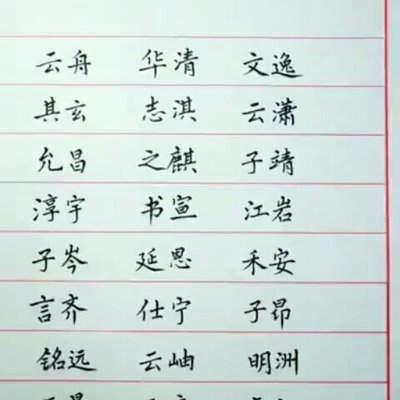 云舟 华清 文逸
其玄 志淇 云潇
允昌 之麒 子靖
淳宇 书宣 江岩
子岑 延恩 禾安
言齐 仕宁 子昂
铭远 云岫 明洲